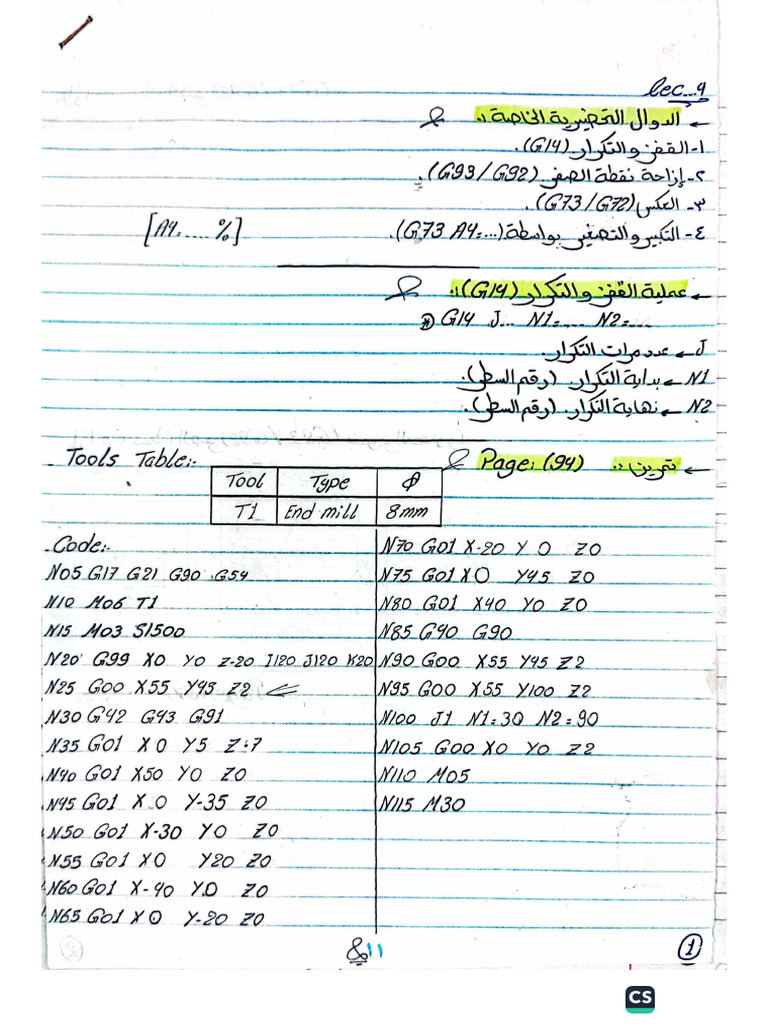 lec...9
← الدوال التحضيرية الخاصة :.
١- القفز والتكرار (G14).
٢- إزاحة نقطة الصفر (G93/G92).
٣- العكس (G73/G72).
٤- التكبير والتصغير بواسطة (G73 A4=...). [A4=.... %]
← عملية القفز والتكرار (G14):.
G14 J... N1=.... N2=....
J ← عدد مرات التكرار.
N1 ← بداية التكرار. (رقم السطر).
N2 ← نهاية التكرار. (رقم السطر).
← تمرين :. Page: (94)
Tools Table:-
Tool Type φ
T1 End mill 8mm
Code:-
N05 G17 G21 G90 G54
N10 M06 T1
N15 M03 S1500
N20 G99 X0 Y0 Z-20 I120 J120 K20
N25 G00 X55 Y45 Z2 ⇐
N30 G42 G43 G91
N35 G01 X0 Y5 Z-7
N40 G01 X50 Y0 Z0
N45 G01 X0 Y-35 Z0
N50 G01 X-30 Y0 Z0
N55 G01 X0 Y20 Z0
N60 G01 X-40 Y0 Z0
N65 G01 X0 Y-20 Z0
N70 G01 X-20 Y0 Z0
N75 G01 X0 Y45 Z0
N80 G01 X40 Y0 Z0
N85 G40 G90
N90 G00 X55 Y45 Z2
N95 G00 X55 Y100 Z2
N100 J1 N1=30 N2=90
N105 G00 X0 Y0 Z2
N110 M05
N115 M30
١١
1
CS